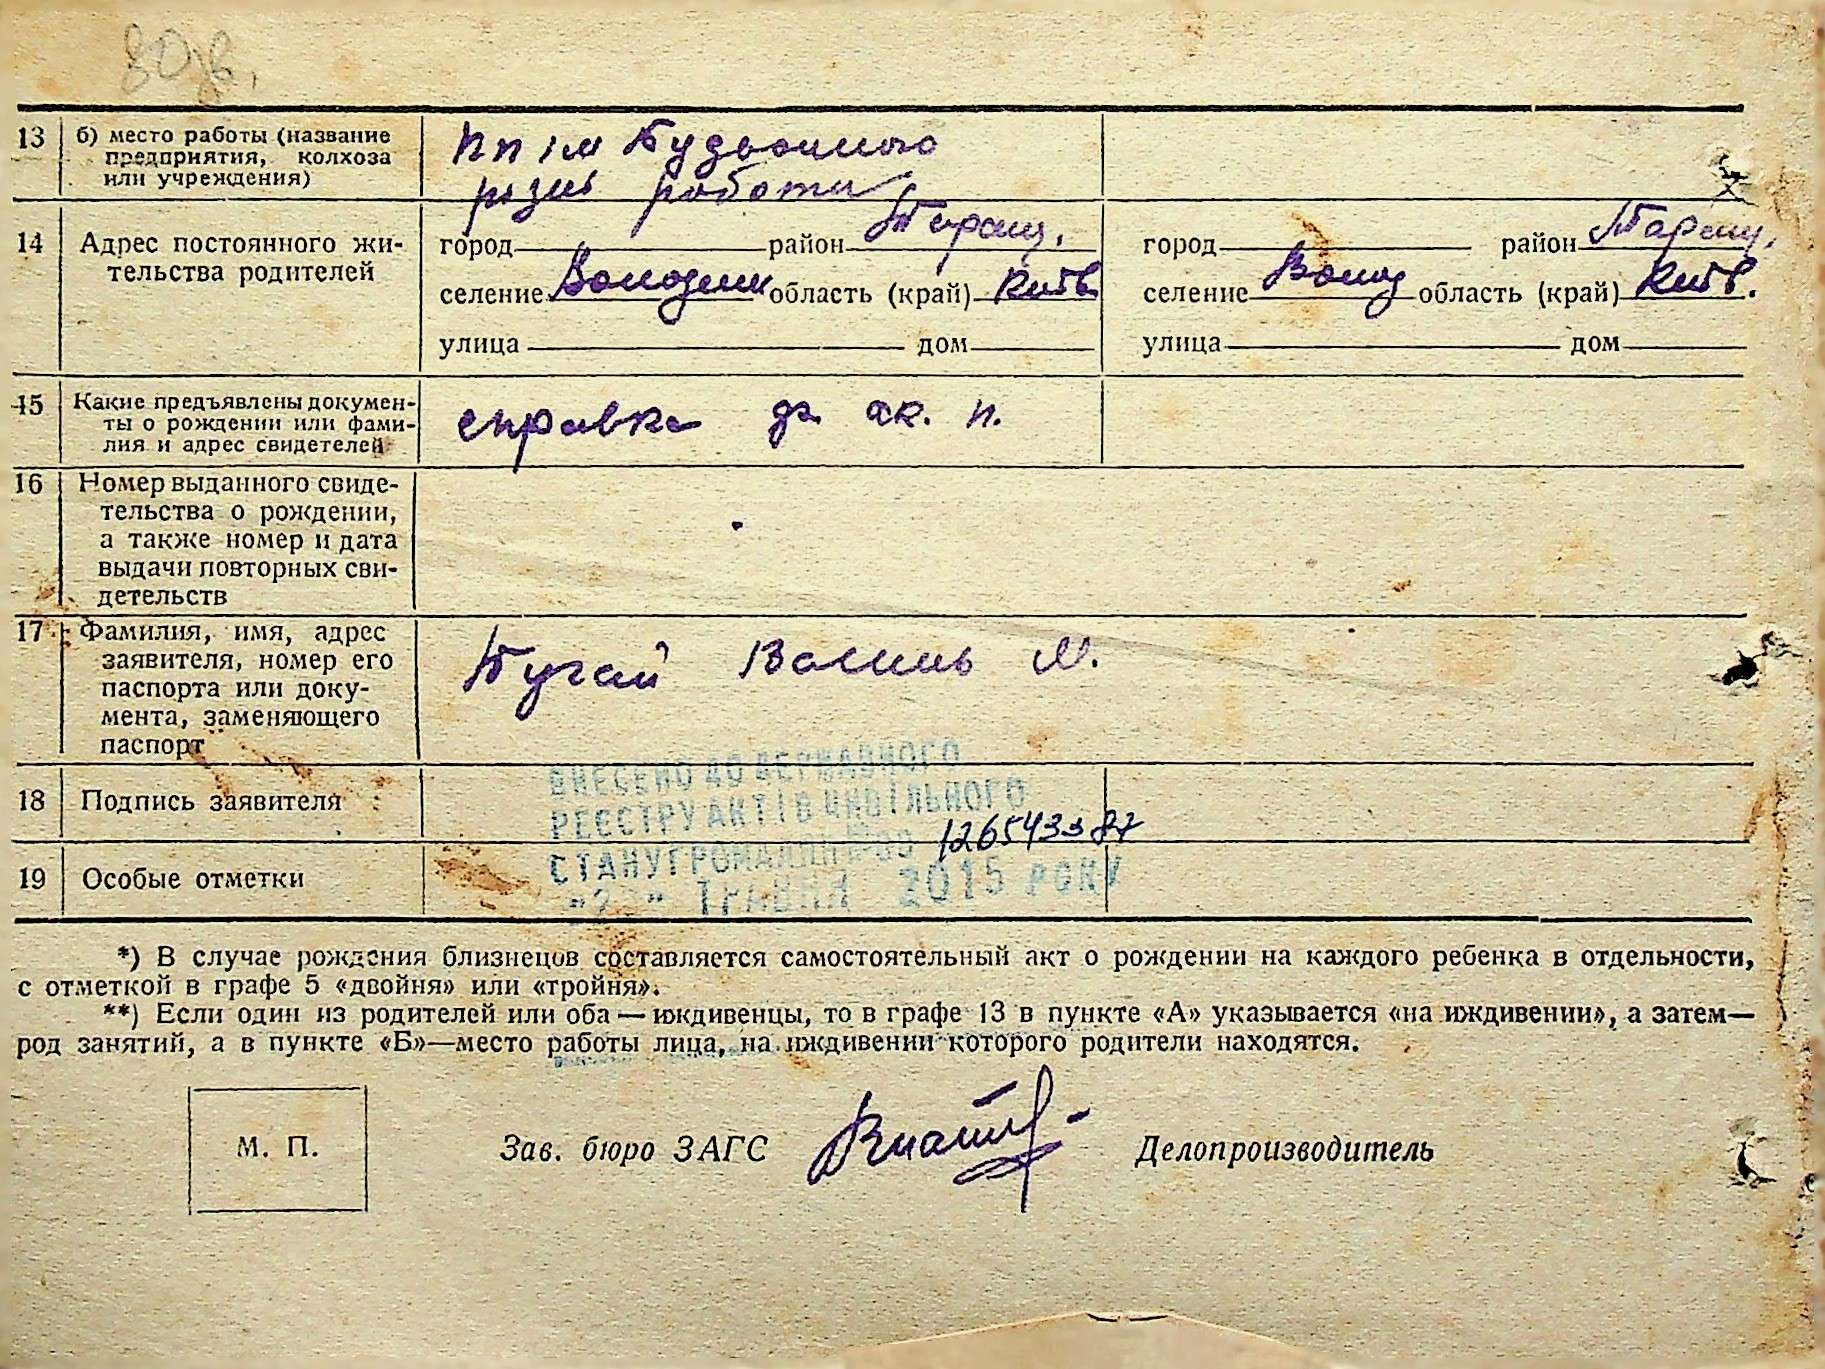 13 б) место работы (название
предприятия, колхоза
или учреждения)
ім Будьонного
різні роботи
14 Адрес постоянного жи-
тельства родителей
город район Таращ. город район Таращ.
селение область (край) Київ селение область (край) Київ.
улица дом улица дом
15 Какие предъявлены докумен-
ты о рождении или фами-
лия и адрес свидетелей
справка
16 Номер выданного свиде-
тельства о рождении,
а также номер и дата
выдачи повторных сви-
детельств
17 Фамилия, имя, адрес
заявителя, номер его
паспорта или доку-
мента, заменяющего
паспорт
Бугай Василь М.
ВНЕСЕНО ДО ДЕРЖАВНОГО
РЕЄСТРУ АКТІВ ЦИВІЛЬНОГО
18 Подпись заявителя
СТАНУ ГРОМАДЯН
19 Особые отметки
ТРАВНЯ 2015 РОКУ
*) В случае рождения близнецов составляется самостоятельный акт о рождении на каждого ребенка в отдельности,
с отметкой в графе 5 «двойня» или «тройня».
**) Если один из родителей или оба — иждивенцы, то в графе 13 в пункте «А» указывается «на иждивении», а затем—
род занятий, а в пункте «Б»—место работы лица, на иждивении которого родители находятся.
М. П. Зав. бюро ЗАГС Делопроизводитель